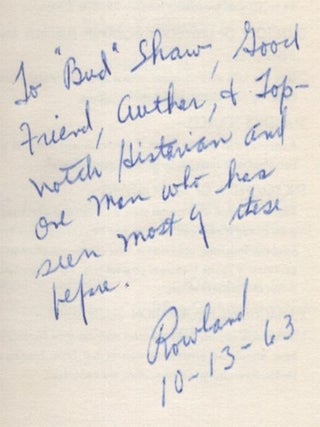 To "Bud" Shaw, Good
Friend, Auther, & Top-
notch Historian and
one man who has
seen most of these
before.
Rowland
10-13-63